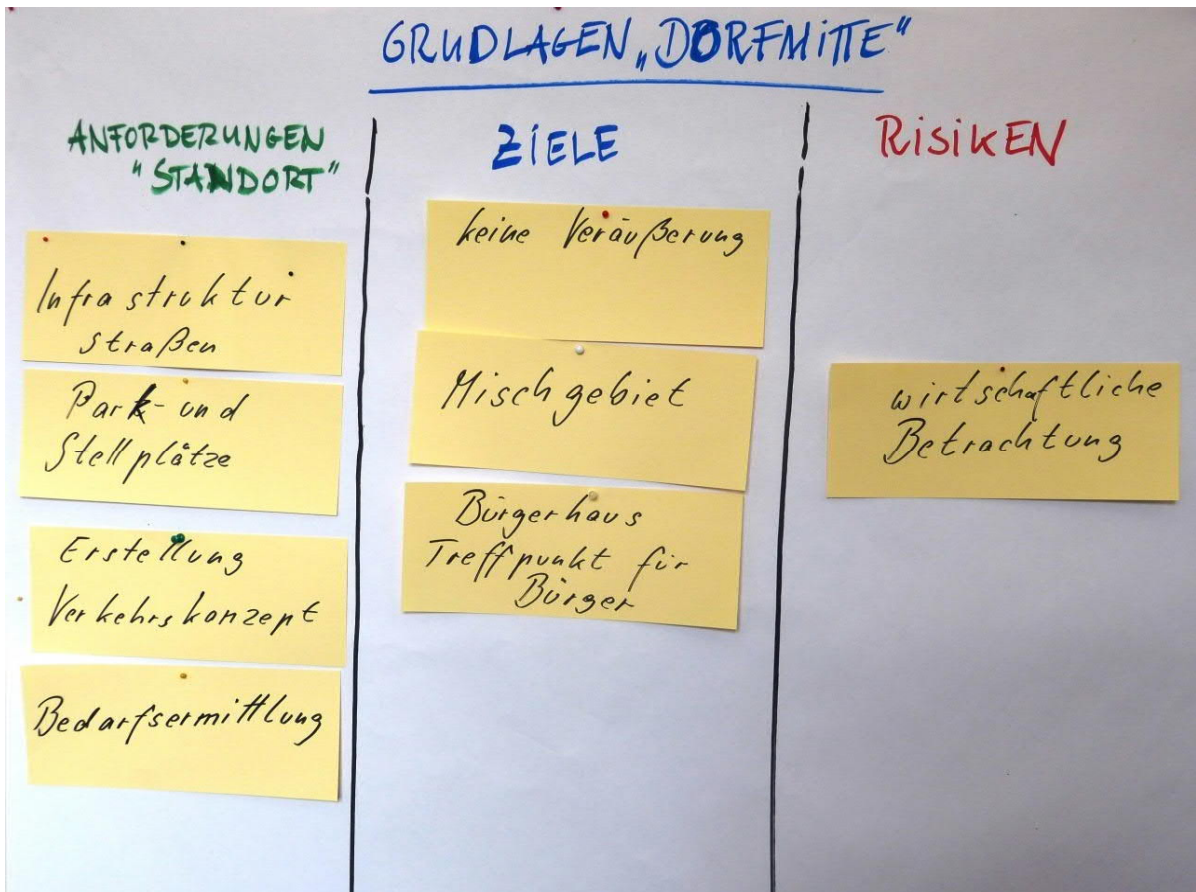 GRUDLAGEN „DORFMITTE"
ANFORDERUNGEN
"STANDORT"
Infrastruktur
straßen
Park- und
Stellplätze
Erstellung
Verkehrskonzept
Bedarfsermittlung
ZIELE
keine Veräußerung
Mischgebiet
Bürgerhaus
Treffpunkt für
Bürger
RISIKEN
wirtschaftliche
Betrachtung